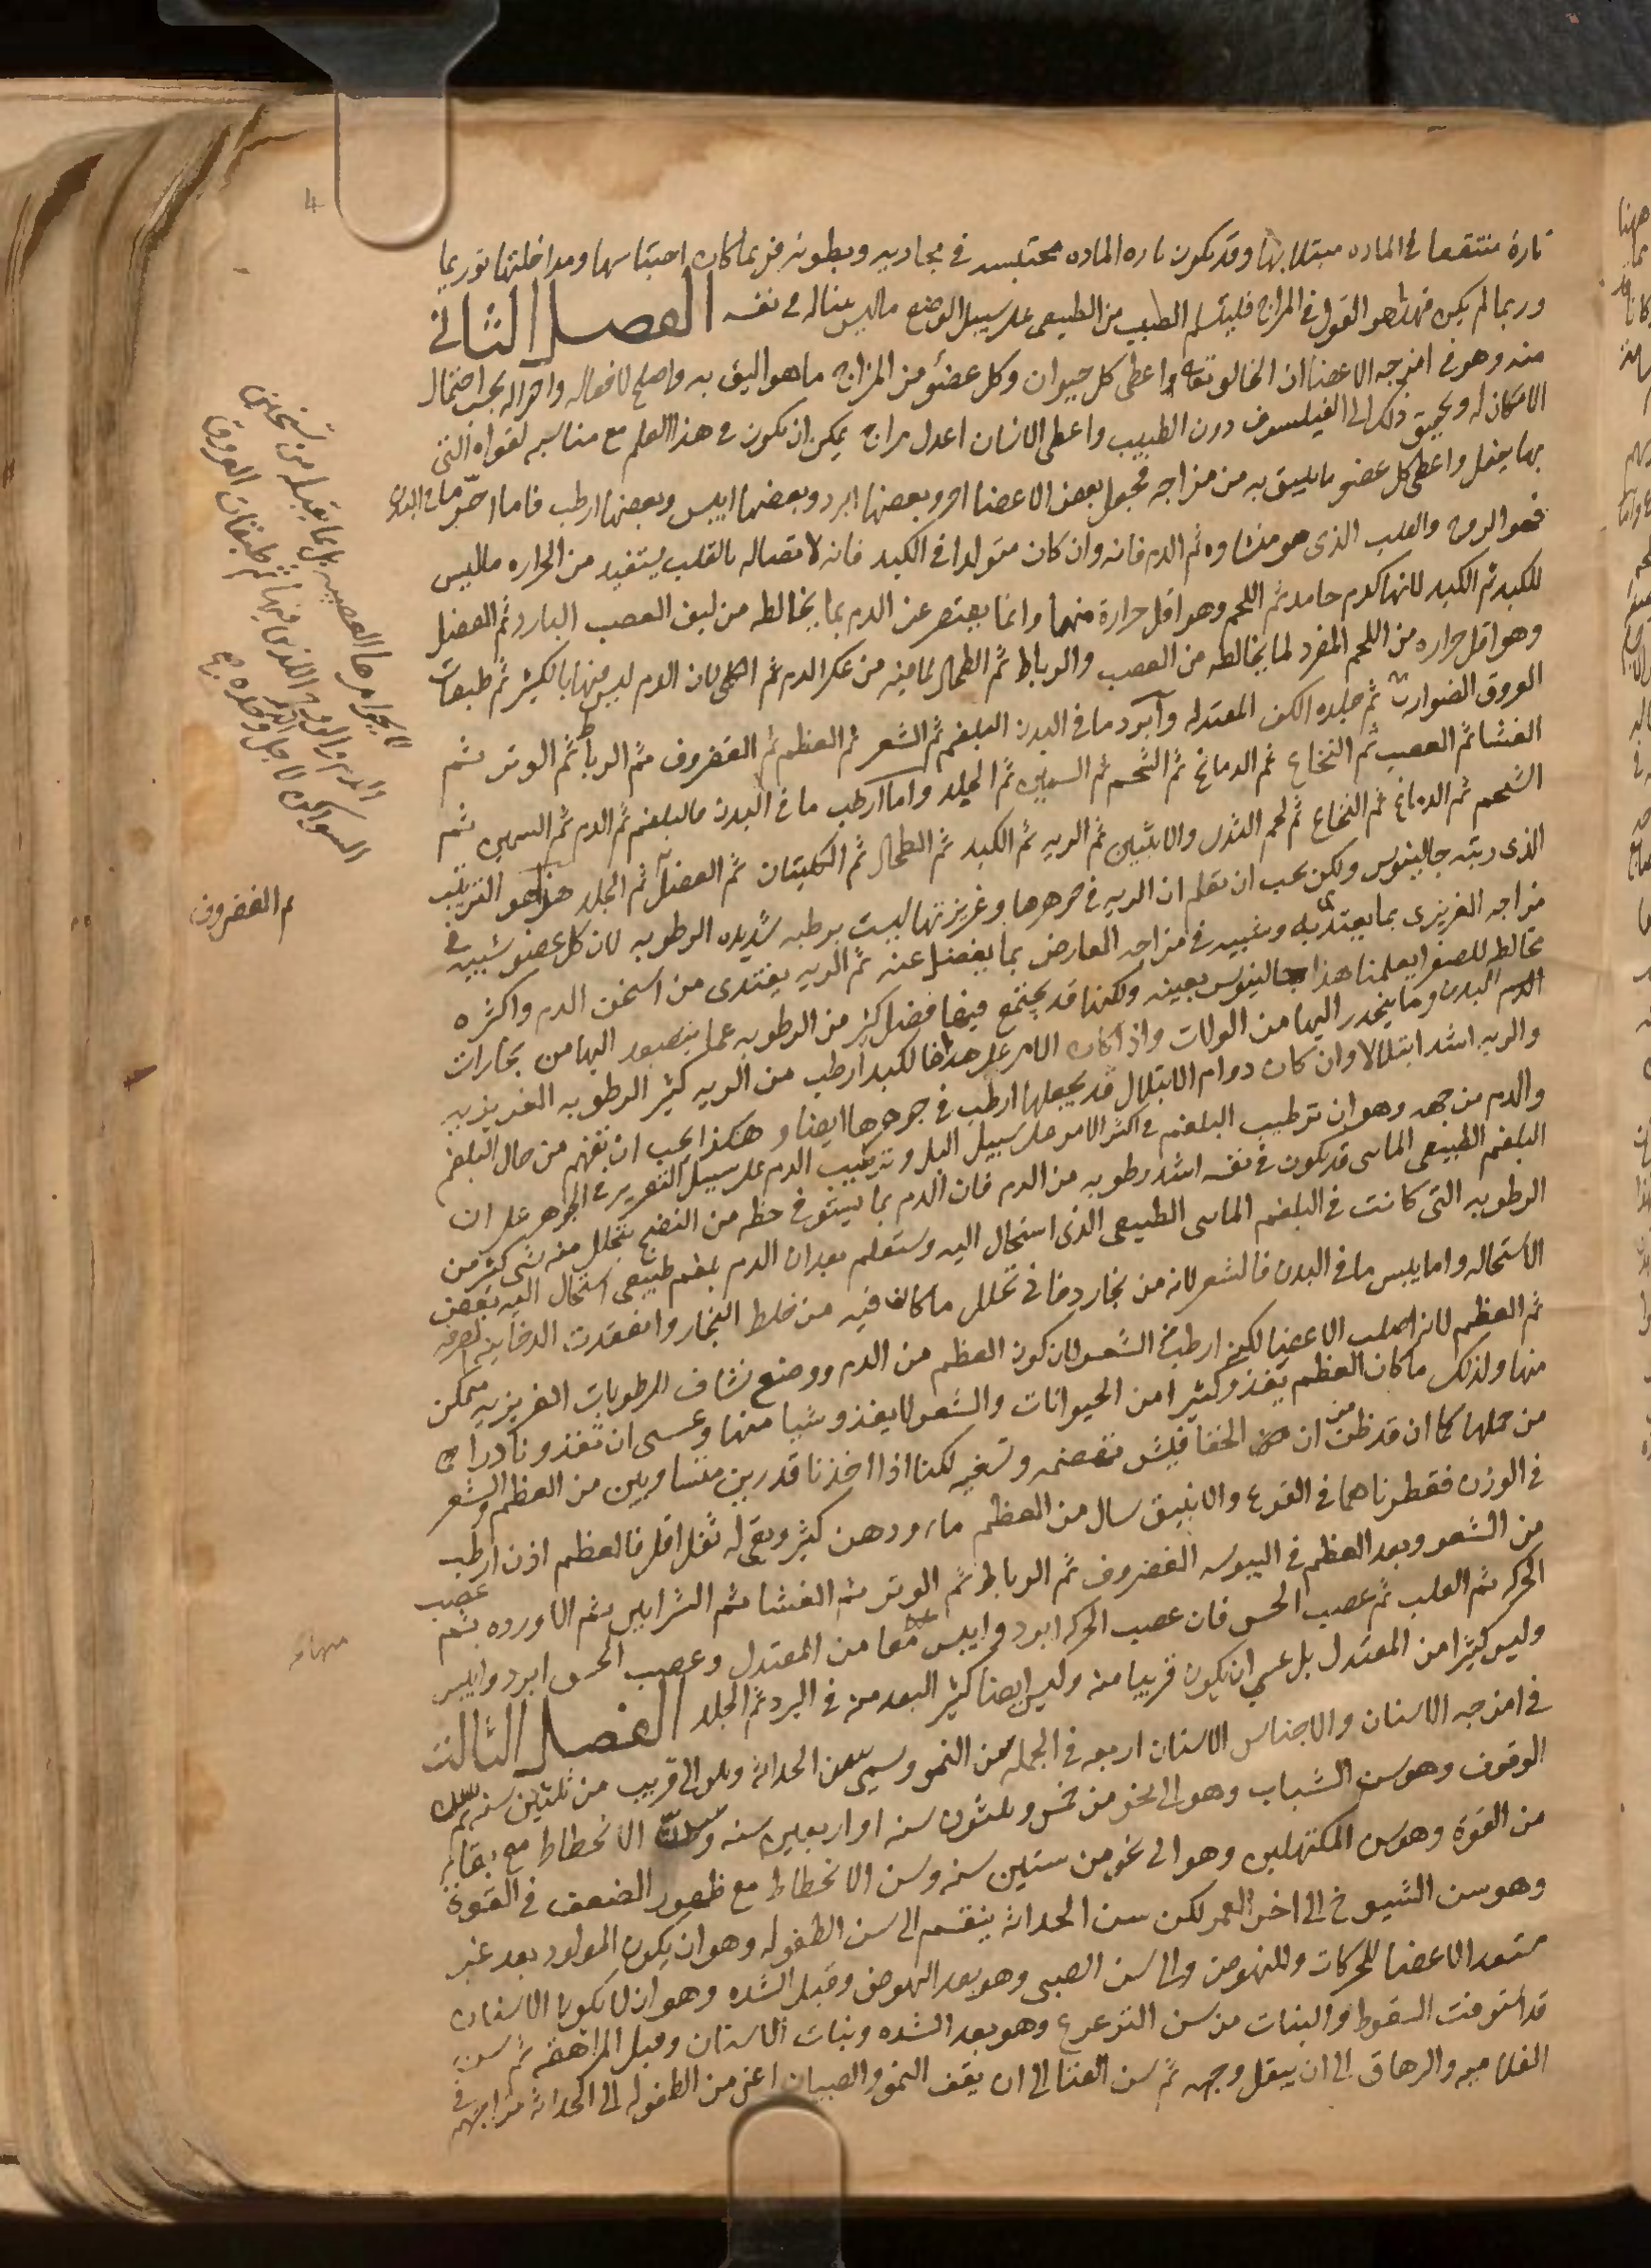 4
تارة منتقعا في الماده مبتلا بها وقد تكون تاره الماده محتبسه في مجاريه وبطونه فربما كان احتباسها ومداخلتها توريما
وربما لم يكن فهذا هو القول في المزاج فليتسلم الطبيب من الطبيعي على سبيل الوضع ما ليس بينا له في نفسه الفصل الثاني
منه وهو في امزجه الاعضا ان الخالق تعالى اعطى كل حيوان وكل عضو من المزاج ما هو اليق به واصلح لافعاله واحواله بحسب احتمال
الامكان له وتحقيق ذلك الى الفيلسوف دون الطبيب واعطى الانسان اعدل مزاج يمكن ان يكون في هذا العلم مع مناسبه لقواه التي
بها يفعل واعطى كل عضو ما يليق به من مزاجه فجعل بعض الاعضا احر وبعضها ابرد وبعضها ايبس وبعضها ارطب فاما احر ما في البدن
فهو الروح والقلب الذي هو منشاوه ثم الدم فانه وان كان متولدا في الكبد فانه لاتصاله بالقلب يستفيد من الحراره ما ليس
للكبد ثم الكبد لانها كدم جامد ثم اللحم وهو اقل حرارة منها وانما يقتصر عن الدم بما يخالطه من ليف العصب البارد ثم العضل
وهو اقل حراره من اللحم المفرد لما يخالطه من العصب والرباط ثم الطحال لما فيه من عكر الدم ثم الكلى لان الدم ليس فيها بالكثير ثم طبقات
العروق الضوارب ثم جلده الكف المعتدله وابرد ما في البدن البلغم ثم الشعر ثم العظم ثم الغضروف ثم الرباط ثم الوتر ثم
الغشا ثم العصب ثم النخاع ثم الدماغ ثم الشحم ثم السمين ثم الجلد واما ارطب ما في البدن فالبلغم ثم الدم ثم السمين ثم
الشحم ثم الدماغ ثم النخاع ثم لحم الثدي والانثيين ثم الريه ثم الكبد ثم الطحال ثم الكليتان ثم العضل ثم الجلد هذا هو الترتيب
الذي رتبه جالينوس ولكن يجب ان تعلم ان الريه في جوهرها وغريزتها ليست برطبه شديده الرطوبه لان كل عضو شبيه في
مزاجه الغريزي بما يغتذي به وشبيه في مزاجه العارض بما يفضل عنه ثم الريه يغتذي من اسخن الدم واكثره
مخالطه للصفرا يعلمنا هذا جالينوس بعينه ولكنها قد يجتمع فيها فضل كثير من الرطوبه عما يتصعد اليها من بخارات
البدن وما ينحدر اليها من النزلات واذا كان الامر على هذا فالكبد ارطب من الريه كثير الرطوبه الغريزيه
والريه اشد ابتلالا وان كان دوام الابتلال قد يجعلها ارطب في جوهرها ايضا وهكذا يجب ان تفهم من حال البلغم
والدم من جهه وهو ان ترطيب البلغم في اكثر الامر على سبيل البل وترطيب الدم على سبيل التقرير في الجوهر على ان
البلغم الطبيعي المائي قد يكون في نفسه اشد رطوبه من الدم فان الدم بما يستوفي حظه من النضج يتحلل منه شي كثير من
الرطوبه التي كانت في البلغم المائي الطبيعي الذي استحال اليه وستعلم بعد ان الدم بلغم طبيعي استحال اليه بعض
الاستحاله واما ايبس ما في البدن فالشعر لانه من بخار دخاني تحلل ما كان فيه من خلط البخار وانعقدت الدخانيه الصرفه
ثم العظم لانه اصلب الاعضا لكنه ارطب من الشعر لان كون العظم من الدم ووضع نشاف للرطوبات الغريزيه متمكن
منها ولذلك ما كان العظم يغذو كثيرا من الحيوانات والشعر لا يغذو شيا منها وعسى ان تغذو نادرا
من جملها كما ان قد ظن من ان الخفافيش تهضمه وتسغيه لكنا اذا اخذنا قدرين متساويين من العظم والشعر
في الوزن فقطرناهما في القرع والانبيق سال من العظم ماء ودهن كثير وبقي له ثفل اقل فالعظم اذن ارطب
من الشعر وبعد العظم في اليبوسه الغضروف ثم الرباط ثم الوتر ثم الغشا ثم الشرايين ثم الاورده ثم عصب
الحركه ثم القلب ثم عصب الحس فان عصب الحركه ابرد وايبس معا من المعتدل وعصب الحس ابرد وايبس
وليس كثيرا من المعتدل بل عسى ان يكون قريبا منه وليس ايضا كثير البعد منه في البرد ثم الجلد الفصل الثالث
في امزجه الاسنان والاجناس الاسنان اربعه في الجمله سن النمو وسمي سن الحداثه وهو الى قريب من ثلثين سنه ثم سن
الوقوف وهو سن الشباب وهو الى نحو من خمس وثلثون سنه او اربعين سنه وسن الانحطاط مع بقايا
من القوة وهو سن المكتهلين وهو الى نحو من ستين سنه وسن الانحطاط مع ظهور الضعف في القوة
وهو سن الشيوخ الى اخر العمر لكن سن الحداثه ينقسم الى سن الطفوله وهو ان يكون المولود بعد غير
مستعد الاعضا للحركات وللنهوض والى سن الصبى وهو بعد النهوض وقبل الشده وهو ان لا يكون الاسنان
قد استوفت السقوط والنبات من سن الترعرع وهو بعد الشده ونبات الاسنان وقبل المراهقه ثم سن
الغلاميه والرهاق الى ان يبقل وجهه ثم سن الفتا الى ان يقف النمو والصبيان اعني من الطفوله الى الحداثه مزاجهم في
لا بجواهرها العصبيه بل بما يقبله من تسخين
الدم والروح اللذين فيها ثم طبقات العروق
السواكن لاجل الدم وحده
م الغضروف